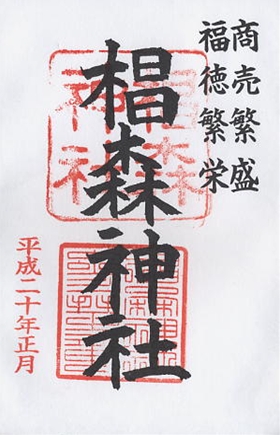 商売繁盛
福徳繁栄
椙森神社
平成二十年正月